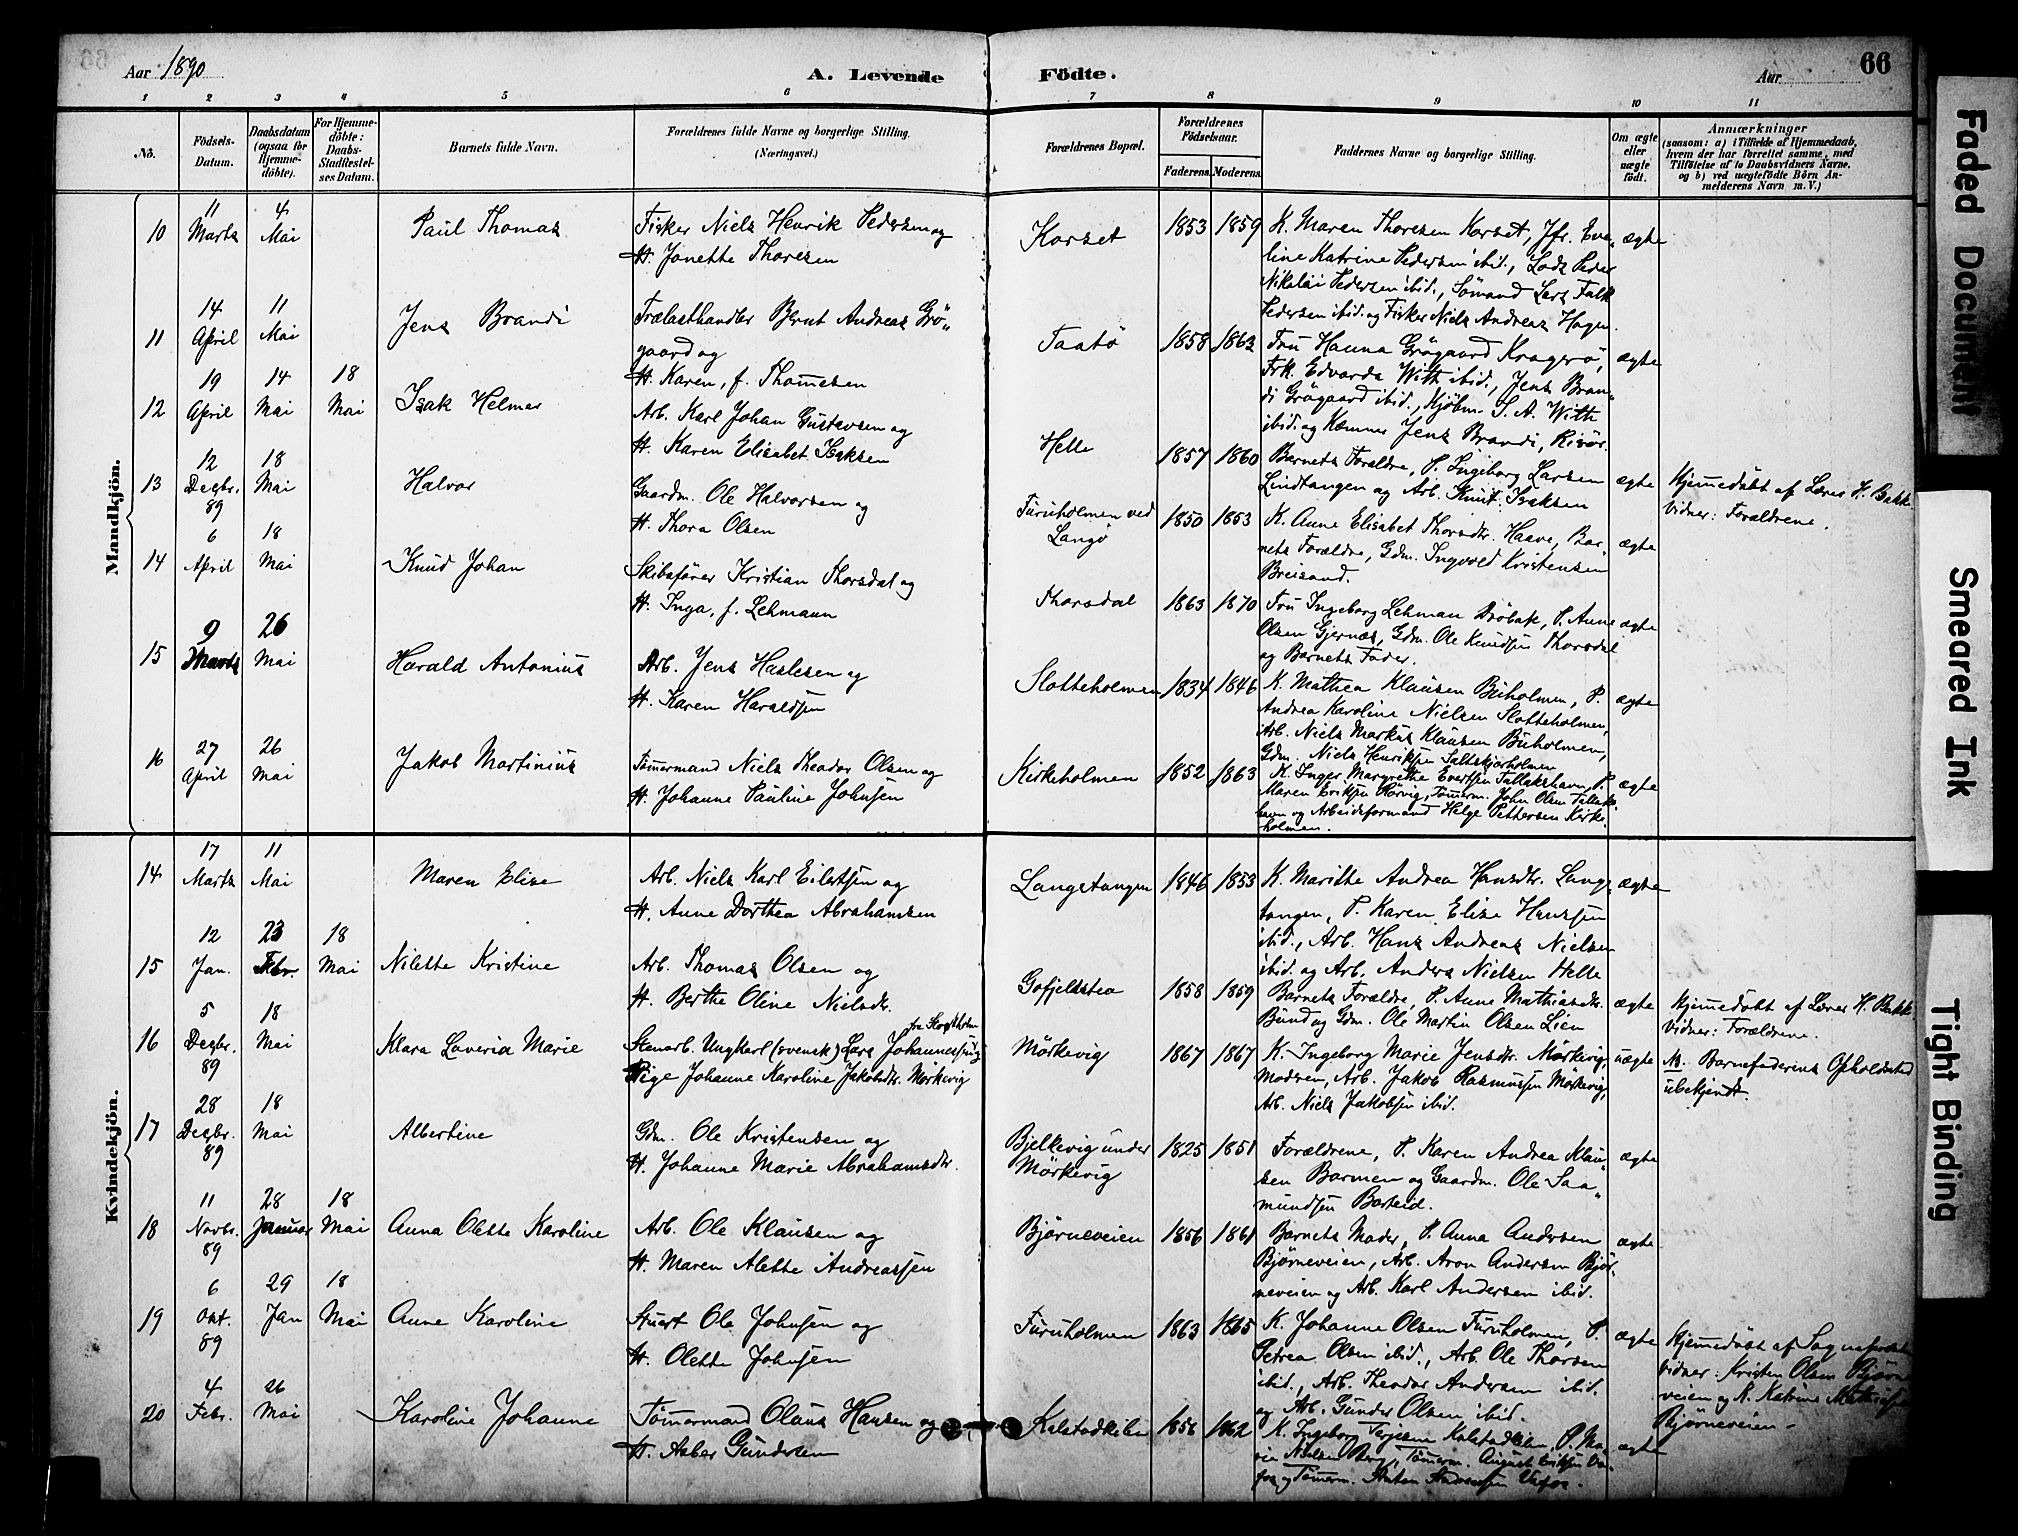 Aar 1890
A. Levende Födte.
Aar
66
1 2 3 4 5 6 7 8 9 10 11
No.
Födsels-Datum.
Daabsdatum (ogsaa for Hjemmedöbte).
For Hjemmedöbte: Daabs-Stadfæstelses Datum.
Barnets fulde Navn.
Forældrenes fulde Navne og borgerlige Stilling. (Næringsvei.)
Forældrenes Bopæl.
Forældrenes Födselsaar.
Faderens. Moderens.
Faddernes Navne og borgerlige Stilling.
Om ægte eller uægte födt.
Anmærkninger
(saasom: a) i Tilfælde af Hjemmedaab,
hvem der har forrettet samme, med
Tilföielse af to Daabsvidners Navne,
og b) ved uægtefödte Börn An-
melderens Navn m. V.)
Mandkjön.
10
11 Marts
4 Mai
Paul Thomas
Fisker Niels Henrik Pedersen og
H. Janette Thoresen
Korset
1853 1859
K. Maren Thoresen Korset, Jfr. Eve-
line Katrine Pedersen ibid., Lods Peder
Nikolai Pedersen ibid., Sömand Lars Falk
Pedersen ibid. og Fisker Niels Andreas Hagen.
ægte
11
14 April
11 Mai
Jens Brandi
Trælasthandler Bernt Andreas Grö-
gaard og
H. Karen, f. Thomesen
Taatö
1858 1863
Fru Hanna Grögaard Kragerö,
Frk. Edvarda With ibid., Jens Bran-
di Grögaard ibid., Kjöbm. S. A. With
ibid. og Kæmner Jens Brandi, Risör.
ægte
12
19 April
14 Mai
18 Mai
Isak Helmer
Arb. Karl Johan Gustavsen og
H. Karen Elisabet Isaksen
Helle
1857 1860
Barnets Forældre, P. Ingeborg Larsen
Lindtangen og Arb. Knut Isaksen
ægte
Hjemmedöbt af Lærer H. Bakk
Vidner: Forældrene.
13
12 Decbr. 89
18 Mai
Halvor
Gaardm. Ole Halvorsen og
H. Thora Olsen
Furuholmen ved
Langö
1850 1853
K. Anne Elisabet Thorsdtr. Haave, Bar-
nets Forældre, Gdm. Ingvold Kristensen
Breisand.
ægte
14
6 April
18 Mai
Knud Johan
Skibsförer Kristian Thorsdal og
H. Inga, f. Lehmann
Thorsdal
1863 1870
Fru Ingeborg Lehman Dröbak, P. Anne
Olsen Gjernæs, Gdm. Ole Knudsen Thorsdal
og Barnets Fader.
ægte
15
9 Marts
26 Mai
Harald Antonius
Arb. Jens Haslesen og
H. Karen Haraldsen
Slotteholmen
1834 1846
K. Mathea Klausen Buholmen, P.
Andrea Karoline Nielsen Slotteholmen,
Arb. Niels Markus Klausen Buholmen,
Gdm. Niels Henriksen Saltskjærholmen
ægte
16
27 April
26 Mai
Jakob Martinius
Tömmermand Niels Theodor Olsen og
H. Johanne Pauline Johnsen
Kirkeholmen
1852 1863
K. Inger Margrethe Evertsen Tallakshavn, P.
Maren Eriksen Rörvig, Tömerm. John Olsen Tallaks-
havn og Arbeidsformand Helge Pettersen Kirke-
holmen.
ægte
Kvindekjön.
14
17 Marts
11 Mai
Maren Elise
Arb. Niels Karl Eilertsen og
H. Anne Dorthea Abrahamsen
Langetangen
1846 1853
K. Marithe Andrea Hansdtr. Lange-
tangen, P. Karen Elise Hanssen
ibid., Arb. Hans Andreas Nielsen
ibid. og Arb. Anders Nielsen Helle
ægte
15
12 Jan.
23 Febr.
18 Mai
Nilette Kristine
Arb. Thomas Olsen og
H. Berthe Oline Nielsdtr.
Gofjeldstea
1858 1859
Barnets Forældre, P. Anne Mathiasdtr.
Bund og Gdm. Ole Martin Olsen Lien
ægte
Hjemmedöbt af Lærer H. Bakk
Vidner: Forældrene.
16
5 Decbr. 89
18 Mai
Klara Laveria Marie
Stenarb. Ungkarl (svensk) Lars Johannessen og
Pige Johanne Karoline Jakobsdtr. Mörkevig
Mörkevig
1867 1867
K. Ingeborg Marie Jensdtr. Mörkevig,
Modren, Arb. Jakob Rasmussen Mörkevig,
Arb. Niels Jakobsen ibid.
uægte
M. Barnefaderens Opholdssted
ubekjendt.
17
28 Decbr. 89
18 Mai
Albertine
Gdm. Ole Kristensen og
H. Johanne Marie Abrahamsdtr.
Bjelkevig under
Mörkevig
1825 1851
Forældrene, P. Karen Andrea Klau-
sen Barmen og Gaardm. Ole Saa-
mundsen Barteid.
ægte
18
11 Novbr. 89
28 Januar
18 Mai
Anna Olette Karoline
Arb. Ole Klausen og
H. Maren Alette Andreassen
Bjørneveien
1856 1861
Barnets Moder, P. Anna Andersen
Bjørneveien, Arb. Aron Andersen Bjør-
neveien og Arb. Karl Andersen ibid.
ægte
19
6 Okt. 89
29 Jan
18 Mai
Anne Karoline
Stuert Ole Johnsen og
H. Olette Johnsen
Furuholmen
1863 1865
K. Johanne Olsen Furuholmen, P.
Petrea Olsen ibid., Arb. Ole Thorsen
ibid., Arb. Theodor Andersen ibid.
og Arb. Gunder Olsen ibid.
ægte
Hjemmedöbt af Sognepresten
Vidner: Kristen Olsen Bjørne-
veien og K. Katrine
Bjørneveien.
20
4 Febr.
26 Mai
Karoline Johanne
Tömmermand Olaus Hansen og
H. Asber Gundersen
Kalstadkilen
1856 1862
K. Ingeborg Terjesen Kalstadkilen, P. Ma-
rie Nielsen Berg, Tömerm. August Eriksen
og Tömerm. Anton Andersen Vafos.
ægte
Faded Document
Smeared Ink
Tight Binding